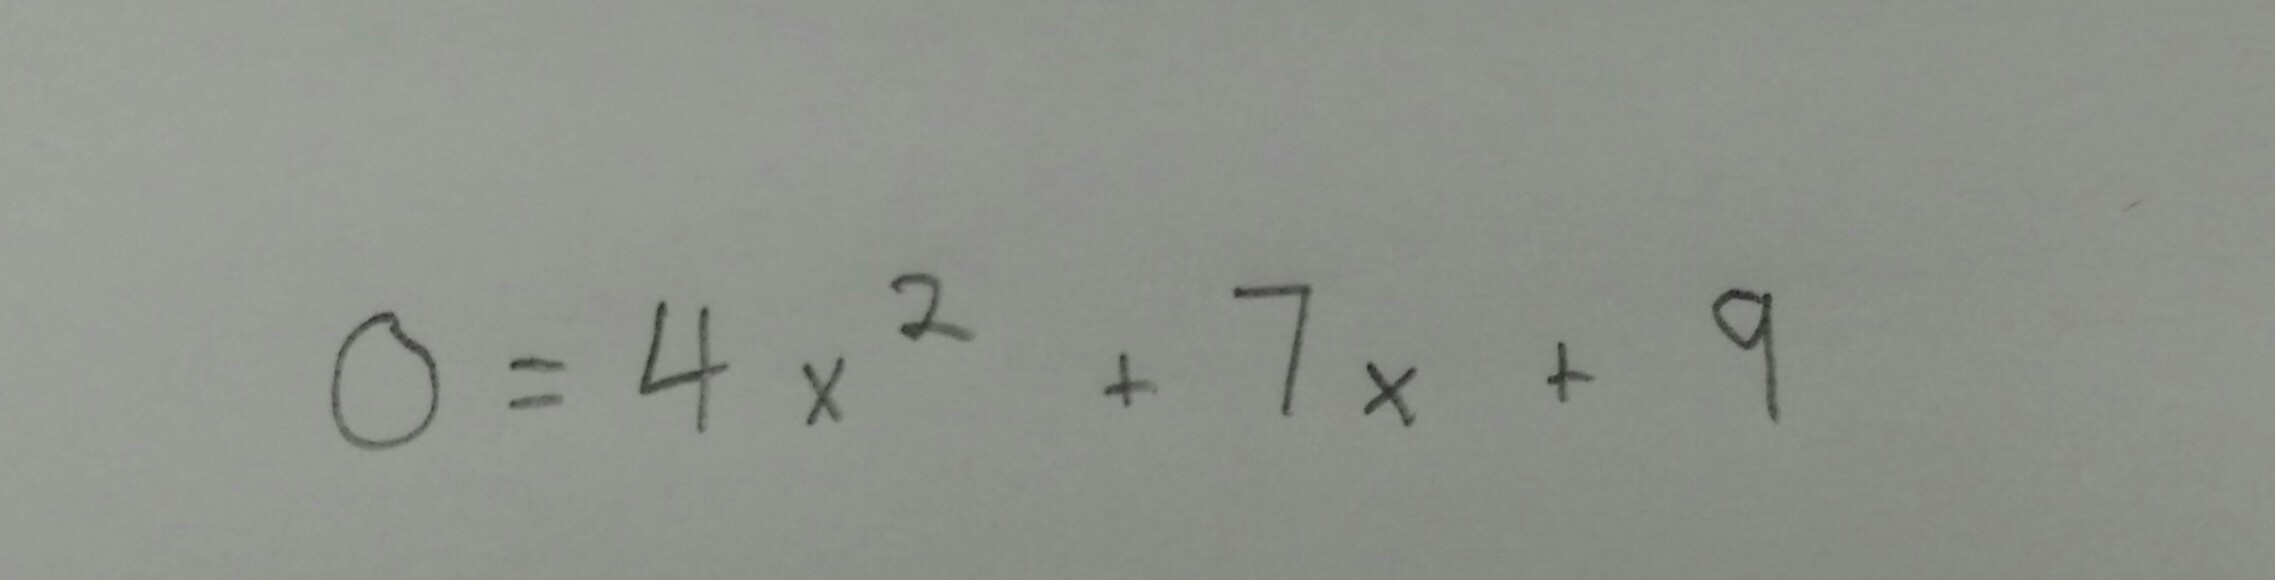 0 = 4x² + 7x + 9